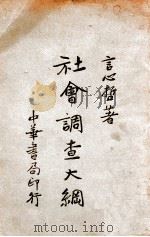 言心哲著
社會調查大綱
中華書局印行